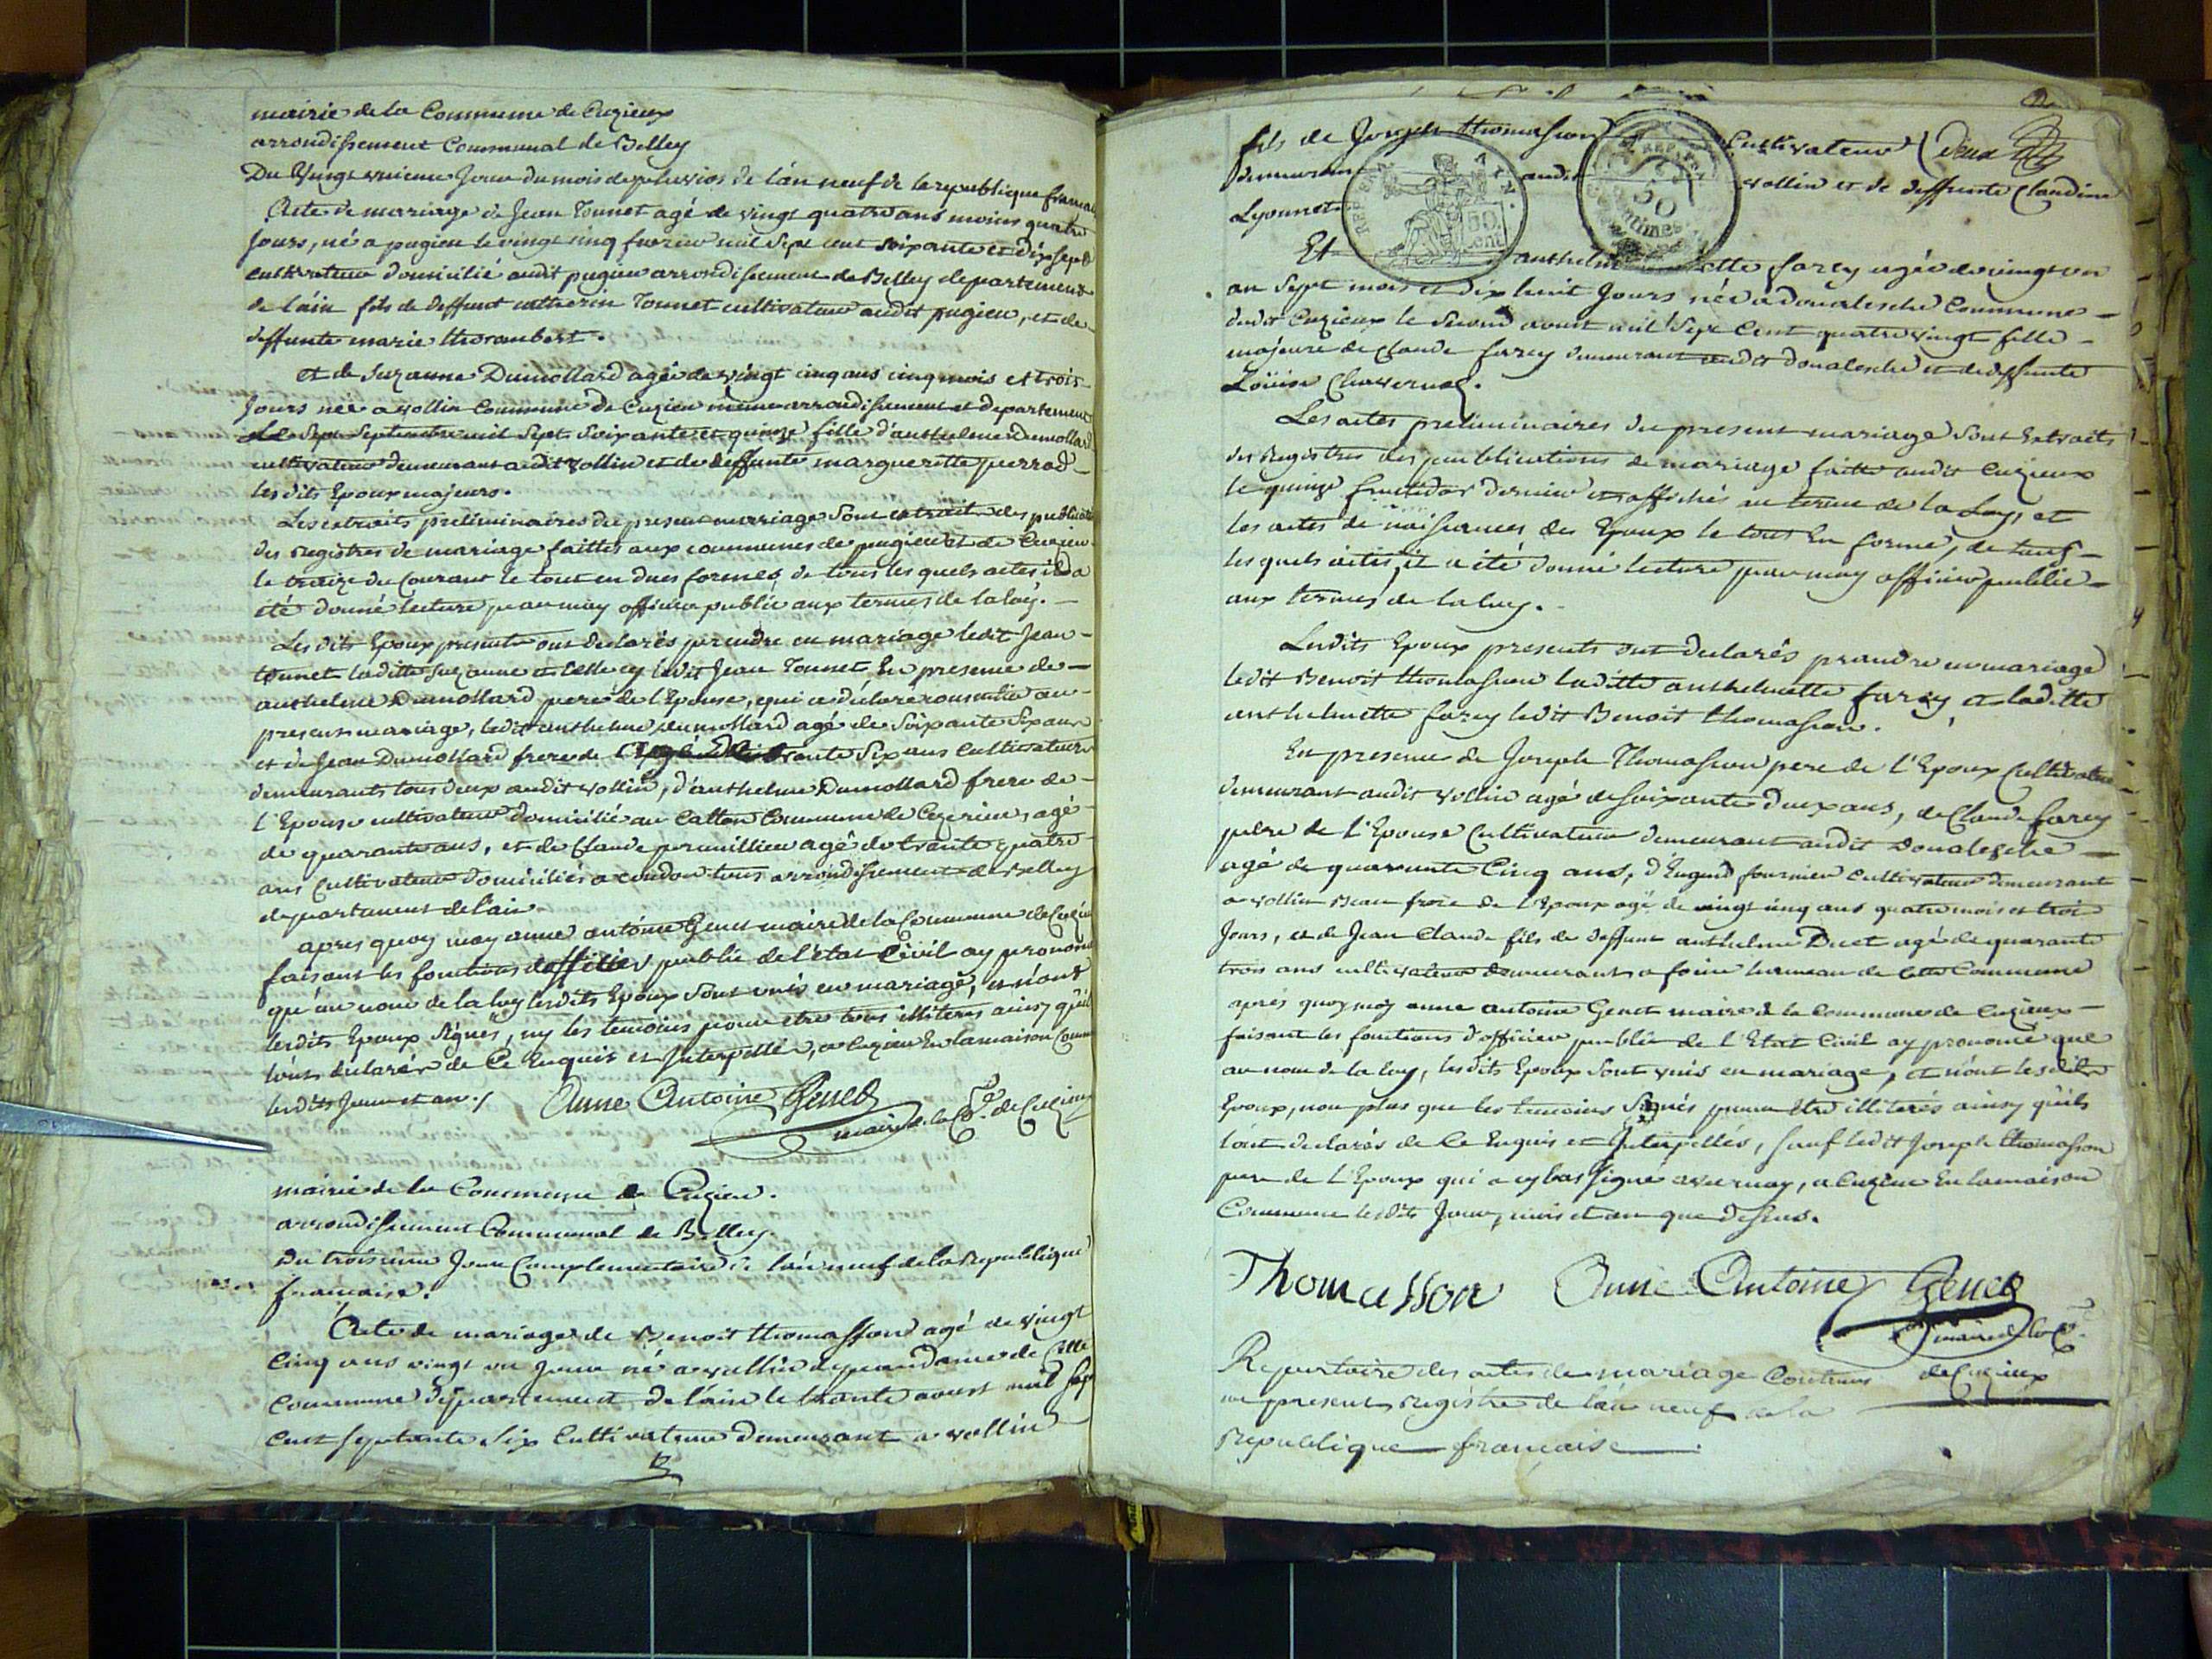 mairie de la Commune de Cuzieux
arrondissement Communal de Belley
Du Vingt unieme Jour du mois de pluvios de l'an neuf de la republique francaise
Acte de mariage de Jean Tonnet agé de vingt quatre ans moins quatre
Jours, né a pugieu le vingt cinq fevrier mil Sept cent soixante et dix sept
cultivateur domicilié audit pugieu arrondissement de Belley departement
de l'ain fils de deffunt catherin Tonnet cultivateur audit pugieu, et de
deffunte marie thorambert.
et de Suzanne Dumollard agée de vingt cinq ans cinq mois et trois
Jours née a vollin Commune de Cuzieu même arrondissement et departement
le Sept Septembre mil Sept Soixante et quinze fille d'anthelme Dumollard
cultivateur demeurant audit vollin et de deffunte margueritte perrod
lesdits Epoux majeurs.
Les extraits preliminaires du present mariage Sont extrait des publications
des registres de mariage faittes aux communes de pugieu et de Cuzieu
le treize du Courant le tout en dues formes de tous les quels actes il a
été donné lecture par moy officier public aux termes de la loy.
Les dits Epoux presents ont declarés prendre en mariage ledit Jean
tonnet laditte Suzanne et celle cy ledit Jean Tonnet En presence de
anthelme Dumollard pere de l'Epouse, qui a déclaré consentir au
present mariage, ledit anthelme dumollard agé de Soixante Six ans
et de Jean Dumollard frere de agé de trante Six ans Cultivateurs
demeurants tous deux audit vollin, d'anthelme Dumollard frere de
l'Epouse cultivateur domicilié au Catton Commune de Ceyzerieu, agé
de quarante ans, et de Claude agé de trante quatre
ans Cultivateur domiciliés a condon tous arrondissement de Belley
departement de l'ain
apres quoy moy anne antoine Genet maire de la Commune de Cuzieu
faisant les fonctions d'officier public de l'état Civil ay prononcé
qu'au nom de la loy lesdits Epoux Sont unis en mariage, et n'ont
lesdits Epoux Signés, ny les temoins pour etre tous illiteres ainsy qu'il
l'ont declarés de Ce Enquis et Interpellé, a Cuzieu En la maison Commune
lesdits Jour et an./ Anne Antoine Genet
maire de la Cne. de Cuzieux
mairie de la Commune de Cuzieu.
arrondissement Communal de Belley.
Du troisieme Jour Complementaire de l'an neuf de la Republique
francaise.
Acte de mariage de Benoit thomasson agé de vingt
Cinq ans vingt un Jour né a vollin dependance de Cette
Commune departement de l'ain le trante aoust mil Sept
cent septante Six Cultivateur demeurant a vollin
fils de Joseph thomasson Cultivateur deux
demeurant audit vollin et de deffunte Claudine
Lyonnet
REP. FRA. 50 cent
REP. FRA. 50 centimes
Et anthelmette farcy agée de vingt un
an Sept mois et dix huit Jours née a donalesche Commune
dudit Cuzieux le Second aoust mil Sept Cent quatre vingt fille
majeure de Claude farcy demeurant audit donalesche et de deffunte
Loüise
Les actes preliminaires du present mariage Sont Extraits
des Registres des publications de mariage faitte audit Cuzieux
le quinze fructidor dernier et affichés au terme de la Loy, et
les actes de naissances des Epoux le tout En forme, de tous
lesquels actes, il a été donné lecture par moy officier public
aux termes de la loy.
Lesdits Epoux presents ont declarés prandre en mariage
ledit Benoit thomasson laditte anthelmette farcy et laditte
anthelmette farcy ledit Benoit thomasson.
En presence de Joseph Thomasson pere de l'Epoux Cultivateur
demeurant audit vollin agé de soixante deux ans, de Claude farcy
pere de l'Epouse Cultivateur demeurant audit Donalesche
agé de quarante Cinq ans, d'Eugend fournier Cultivateur demeurant
a vollin Beau frere de l'Epoux agé de vingt cinq ans quatre mois et trois
Jours, et de Jean Claude fils de deffunt anthelme Ducet agé de quarante
trois ans cultivateur demeurant a hameau de Cette Commune
aprés quoy moy anne antoine Genet maire de la Commune de Cuzieux
faisant les fonctions d'officier public de l'Etat Civil ay prononcé que
au nom de la loy, lesdits Epoux Sont unis en mariage, et n'ont lesdits
Epoux, non plus que les temoins Signés pour Etre illiterés ainsy qu'ils
l'ont declarés de Ce Enquis et Interpellés, Sauf ledit Joseph thomasson
pere de l'Epoux qui a cy bas Signé avec moy, a Cuzieu En la maison
Commune lesdits Jour, mois et an que dessus.
Thomasson Anne Antoine Genet
maire de la Cne.
de Cuzieux
Repertoire des actes de mariage Contenus
au present registre de l'an neuf de la
Republique francaise.